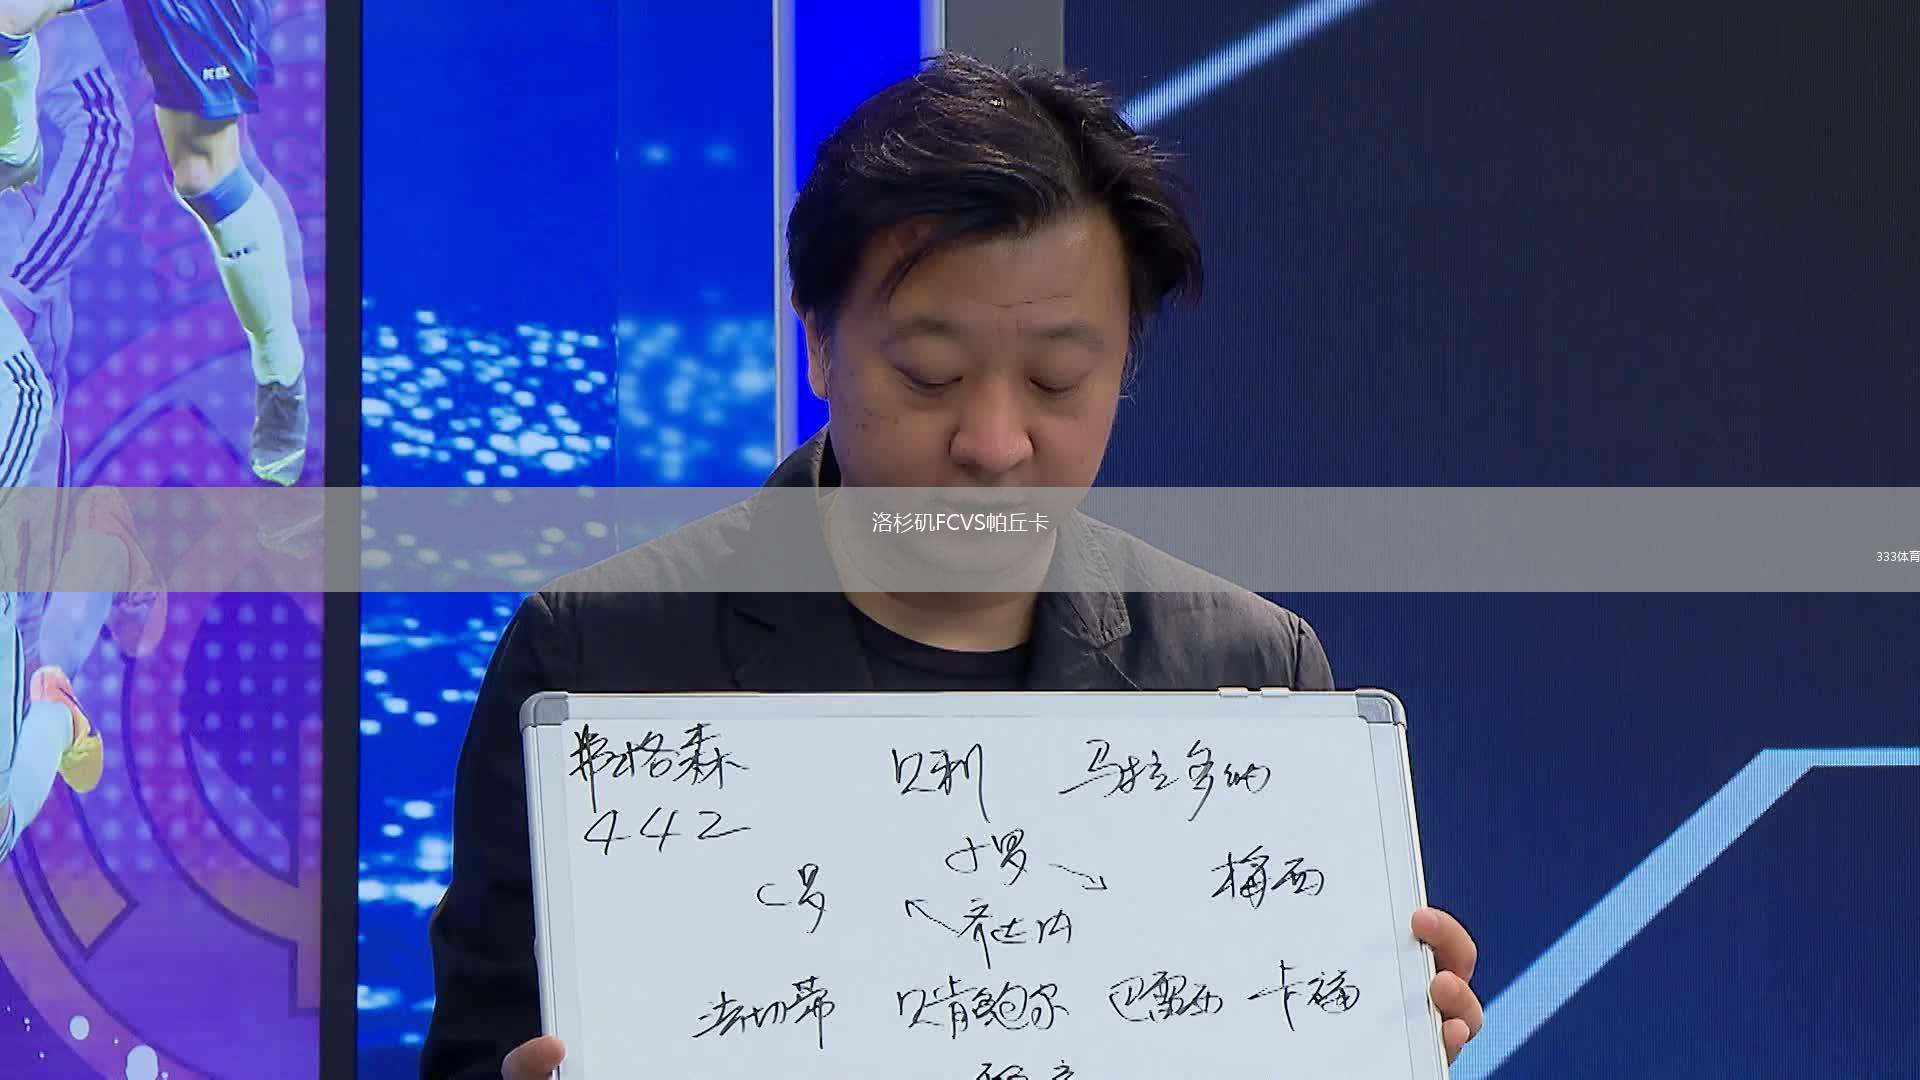 洛杉矶FCVS帕丘卡
333体育
弗格森 贝利 马拉多纳
442
小罗
C罗 梅西
齐达内
法切蒂 贝肯鲍尔 巴雷西 卡福